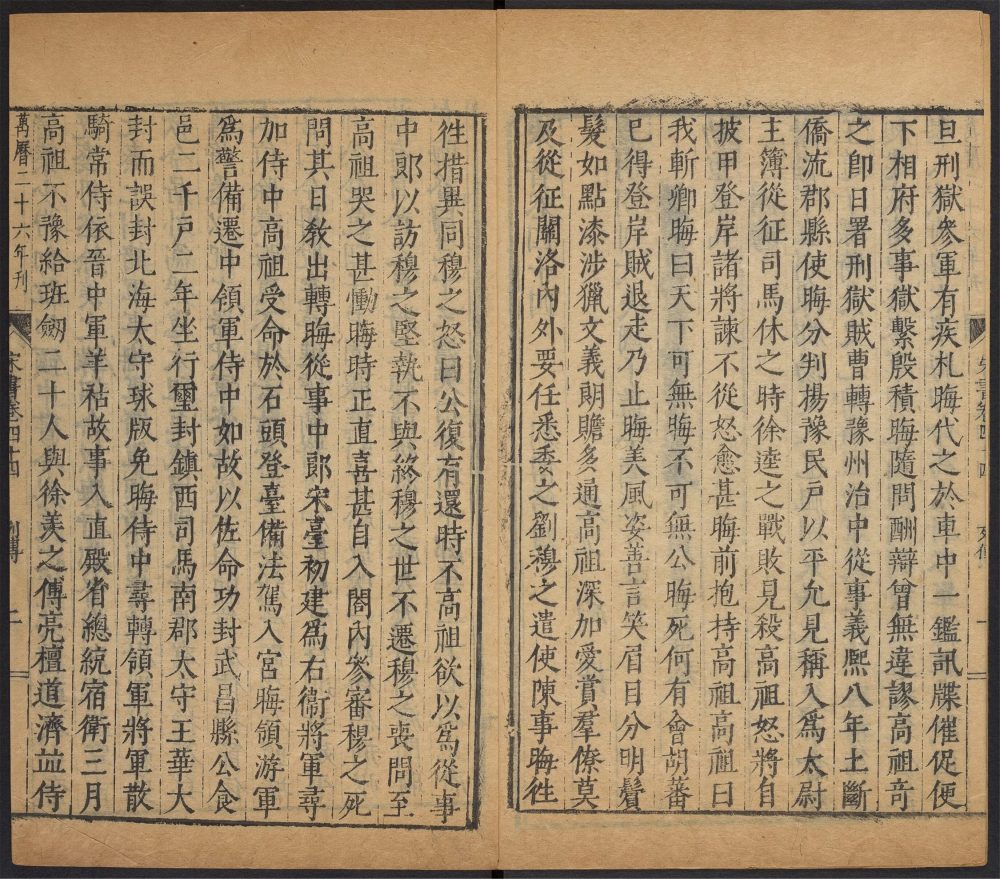 旦刑獄參軍有疾札晦代之於車中一鑑訊牒催促便
下相府多事獄繫殷積晦隨問酬辯曾無違謬高祖竒
之即日署刑獄賊曹轉豫州治中從事義熈八年土斷
僑流郡縣使晦分判揚豫民戸以平允見稱入爲太尉
主簿從征司馬休之時徐逵之戰敗見殺高祖怒將自
披甲登岸諸將諫不從怒愈甚晦前抱持高祖高祖曰
我斬卿晦曰天下可無晦不可無公晦死何有會胡藩
已得登岸賊退走乃止晦美風姿善言笑眉目分明鬢
髮如點漆涉獵文義朗贍多通高祖深加愛賞羣僚莫
及從征關洛内外要任悉委之劉穆之遣使陳事晦徃
宋書卷四十四 列傳 一
徃措異同穆之怒曰公復有還時不高祖欲以爲從事
中郎以訪穆之堅執不與終穆之世不遷穆之喪問至
高祖哭之甚慟晦時正直喜甚自入閤内參審穆之死
問其日敎出轉晦從事中郎宋臺初建爲右衛將軍尋
加侍中高祖受命於石頭登臺備法駕入宮晦領游軍
爲警備遷中領軍侍中如故以佐命功封武昌縣公食
邑二千戸二年坐行璽封鎮西司馬南郡太守王華大
封而誤封北海太守球版免晦侍中尋轉領軍將軍散
騎常侍依晉中軍羊祜故事入直殿省總統宿衛三月
高祖不豫給班劒二十人與徐羨之傅亮檀道濟並侍
萬曆二十六年刊
宋書卷四十四 列傳 二